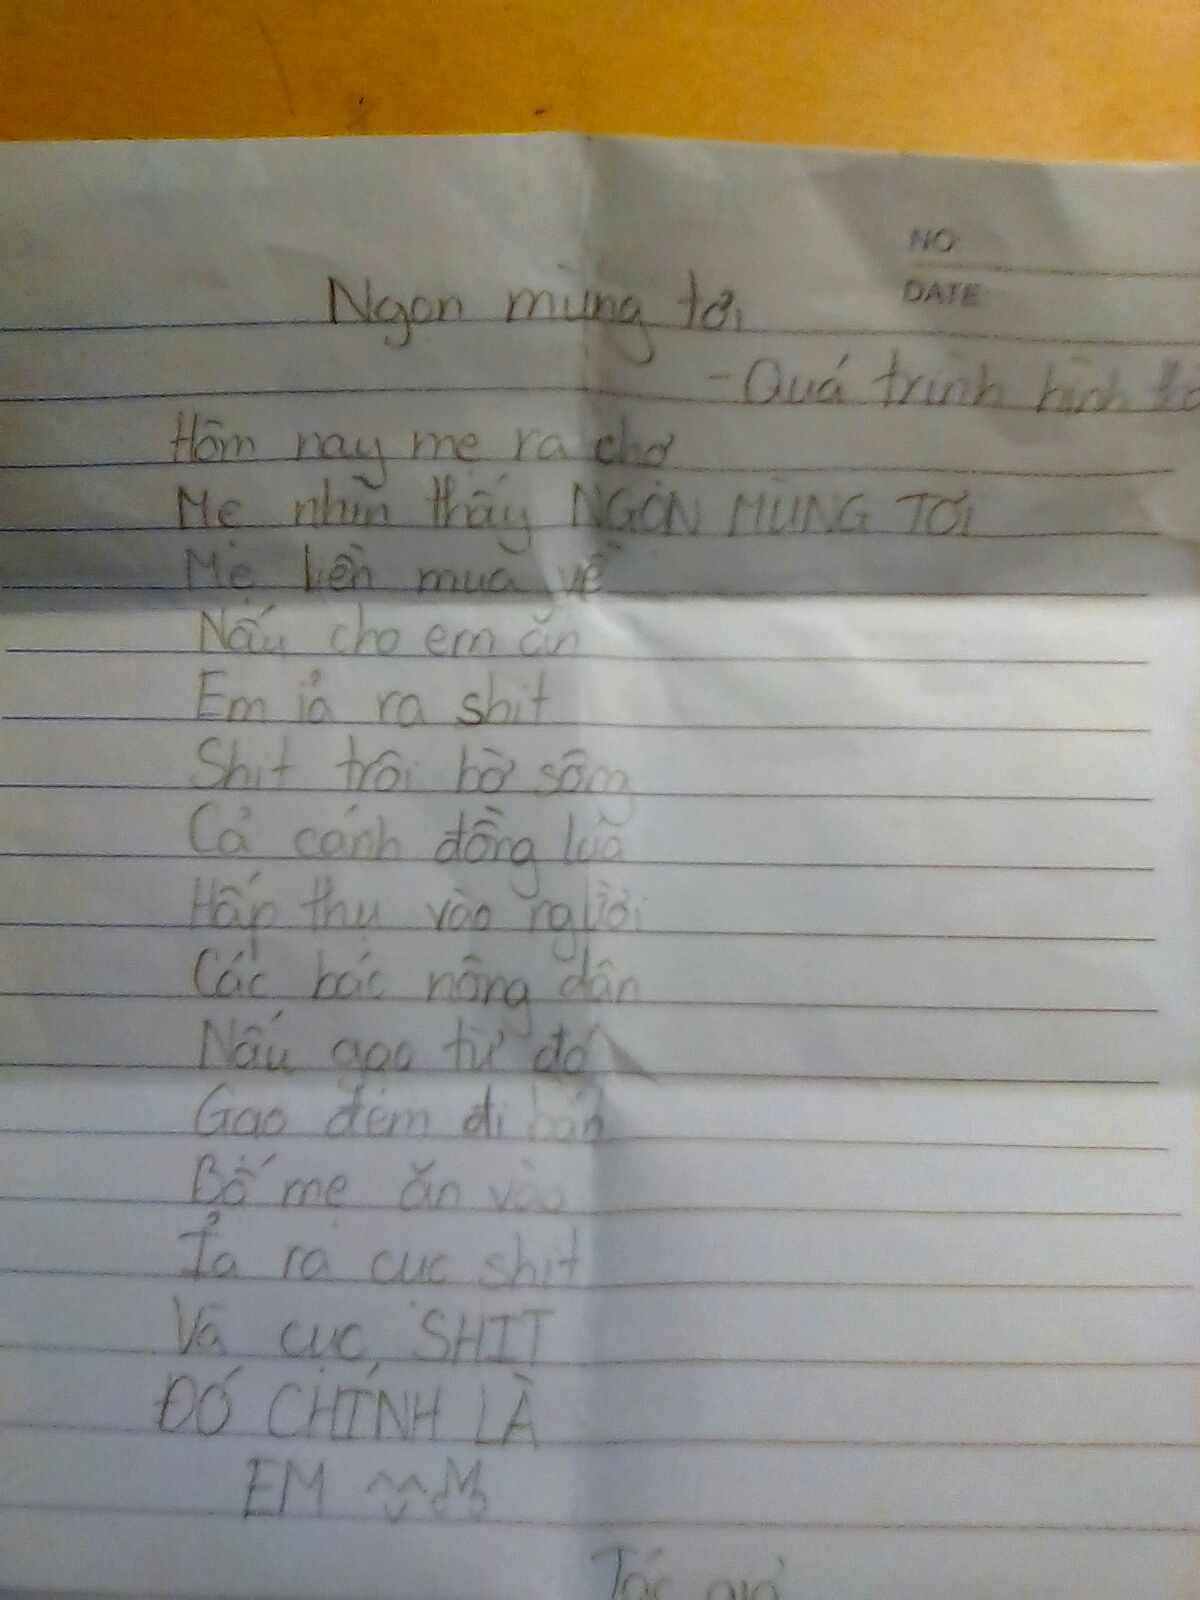 NO:
DATE:
Ngon mùng tơi
- Quá trình hình thà
Hôm nay mẹ ra chợ
Mẹ nhìn thấy NGỌN MÙNG TƠI
Mẹ liền mua về
Nấu cho em ăn
Em ỉa ra shit
Shit trôi bờ sông
Cả cánh đồng lúa
Hấp thụ vào người
Các bác nông dân
Nấu gạo từ đó
Gạo đem đi bán
Bố mẹ ăn vào
Ỉa ra cục shit
Và cục SHIT
ĐÓ CHÍNH LÀ
EM
Tác giả